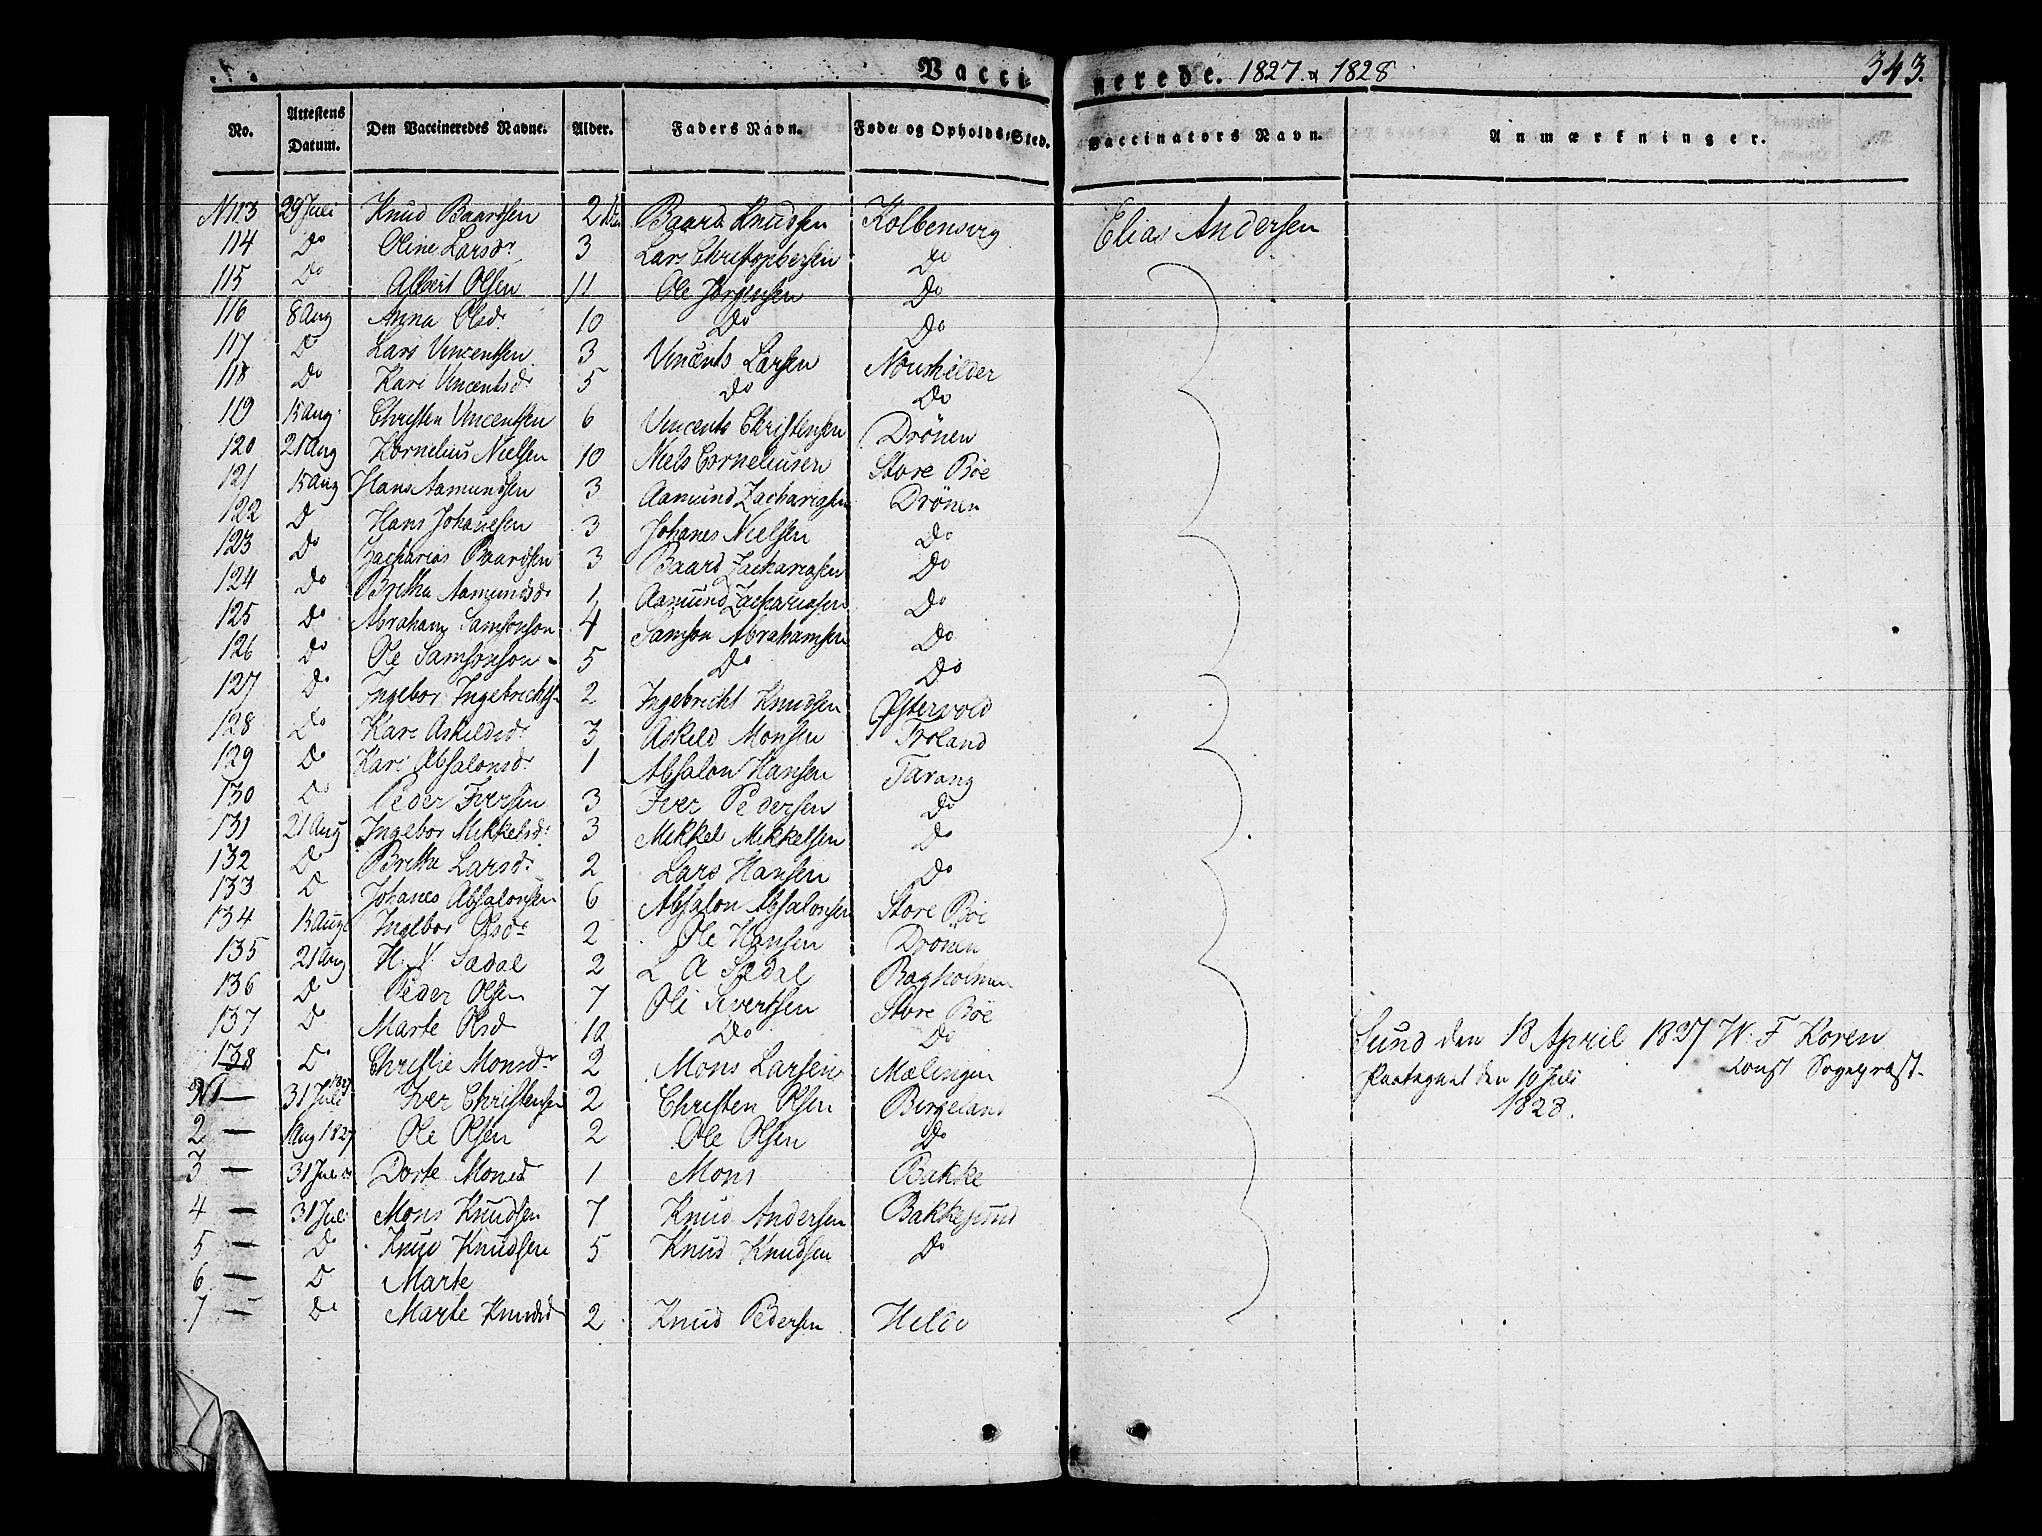 Vaccinerede. 1827. & 1828 343.
No. Attestens Datum. Den Vaccineredes Navne. Alder. Faders Navn. Føde- og Opholds-Sted. Vaccinators Navn. Anmærkninger.
N 113 29 Juli Knud Baardsen 2 Baard Knudsen Kolbensvig Elias Andersen
114 Do Oline Larsdr 3 Lars Christophersen Do
115 Do Albert Olsen 11 Ole Jørgensen Do
116 8 Aug Anna Olsdr. 10 Do Do
117 Do Lars Vincentsen 3 Vincents Larsen
118 Do Kari Vincentsdr 5 Do Do
119 15 Aug. Christen Vincentsen 6 Vincents Christensen Drönen
120 21 Aug Kornelius Nielsen 10 Niels Corneliusen Store Böe
121 15 Aug Hans Aamundsen 3 Aamund Zachariasen Drönen
122 D Hans Johanesen 3 Johanes Nielsen Do
123 Do Zacharias Baardsen 3 Baard Zachariasen Do
124 Do Bretha Aamundsdr 1 Aamund Zachariasen Do
125 Do Abraham Samsonson 4 Samson Abrahamsen Do
126 Do Ole Samsonson 5 Do Do
127 Do Ingebor Ingebrichts 2 Ingebricht Knudsen Østervold
128 Do Kari Askildsdr 3 Askild Monsen Troland
129 Do Kari Absalonsdr 1 Absalon Hansen Tarang
130 Do Peder Iversen 3 Iver Pedersen Do
131 21 Aug Ingebor Mikkelsdr. 3 Mikkel Mikkelsen Do
132 Do Bretha Larsdr 2 Lars Hansen Do
133 D Johanes Absalonsen 6 Absalon Absalonsen Store Böe
134 15 Aug Ingebor Olsdr 2 Ole Hansen Drönen
135 21 Aug H. Sædal 2 L A Sædal Bagholmen
136 D Peder Olsen 7 Ole Sivertsen Store Böe
137 D Marte Olsd 10 Do Do
138 D Christie Monsdr 2 Mons Larsen Mælingen
N 1 — 31 Juli 1827 Iver Christensen 2 Christen Olsen Birgeland
2 — 1 Aug 1827 Ole Olsen 2 Ole Olsen Do
3 — 31 Juli Dorte Monsd 1 Mons Bakke
4 — 31 Juli Mons Knudsen 7 Knud Andersen Bakkesund
5 — Do Knud Knudsen 5 Knud Knudsen Do
6 — D Marte
7 — Do Marte Knudsd 2 Knud Pedersen
Sund den 18 April 1827 W. F. Koren
Const Sogepræst
den 10 Juli
1828.